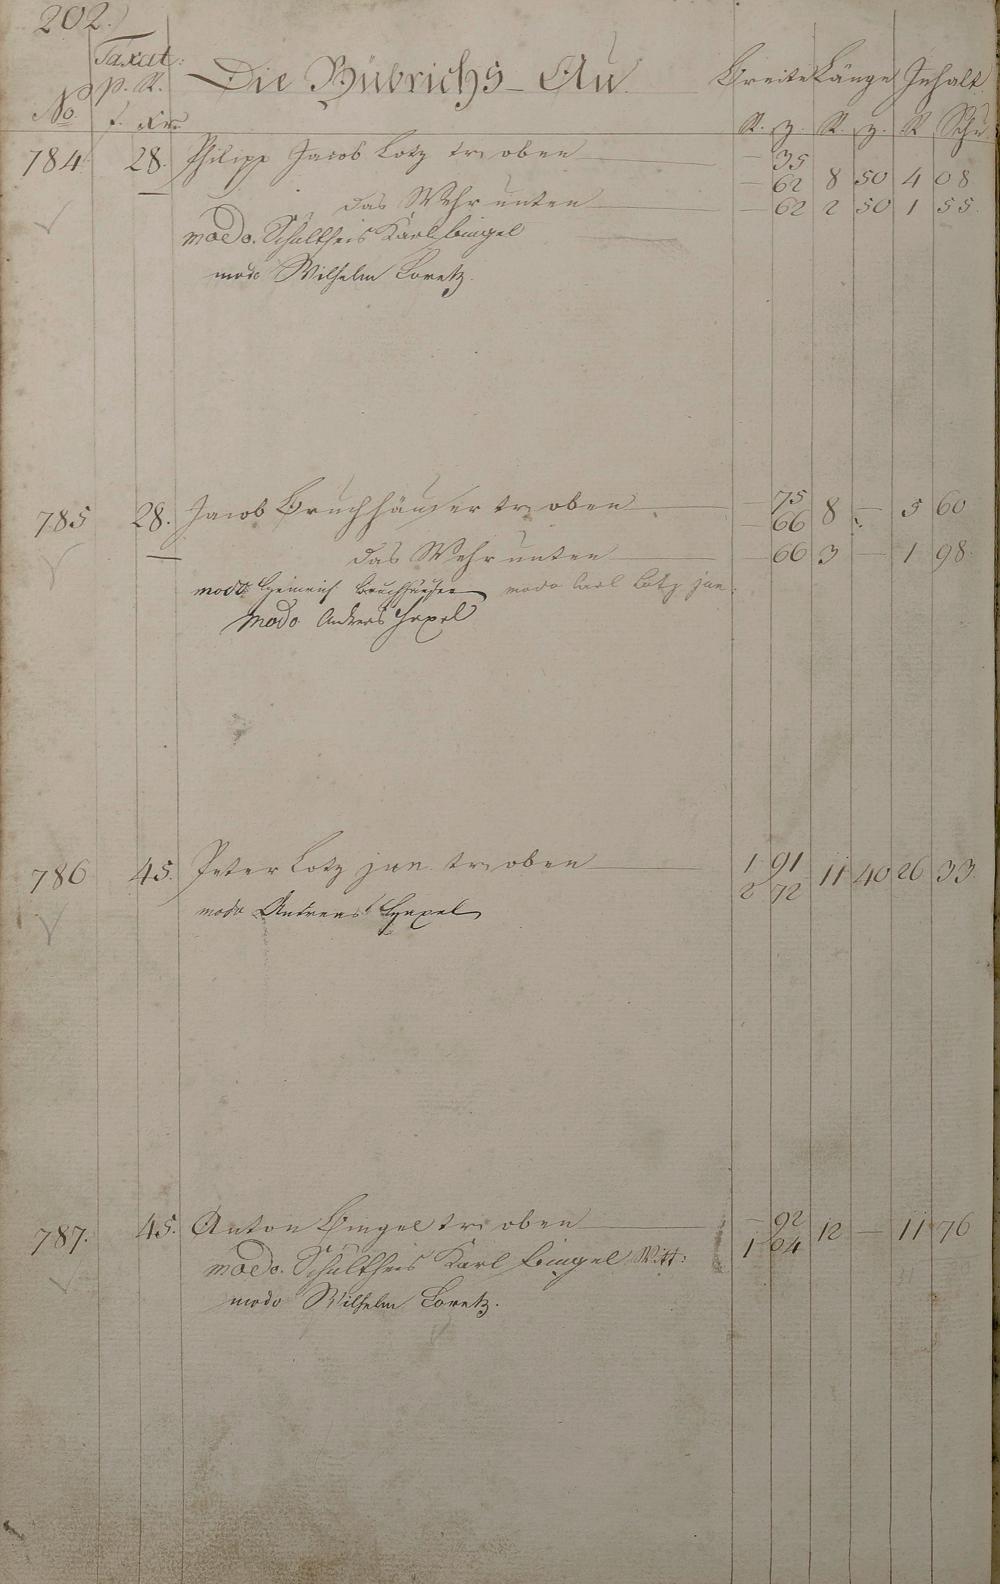 202.
Taxat: Die Bübrichs-Au Breite Länge Inhalt
p. R.
No. f. Kr. R. z. R. z. R Schu
784 28. Philipp Jacob Lotz tr oben — 35
— 62 8 50 4 08
das Wehr unten — 62 2 50 1 55
modo. Schultheis Karl Bingel
modo Wilhelm Loretz.
785 28. Jacob Bruchhäuser tr oben — 75
66 8 — 5 60
das Wehr unten — 66 3 — 1 98
modo Heinrich Bruchhäuser modo Carl Lotz jun:
modo Andreas Hexel
786 45. Peter Lotz jun. tr oben 1 91
2 72 11 40 26 33
modo Andreas Hexel
787. 45. Anton Bingel tr oben — 92
1 04 12 — 11 76
modo. Schultheis Karl Bingel Witt:
modo Wilhelm Loretz.